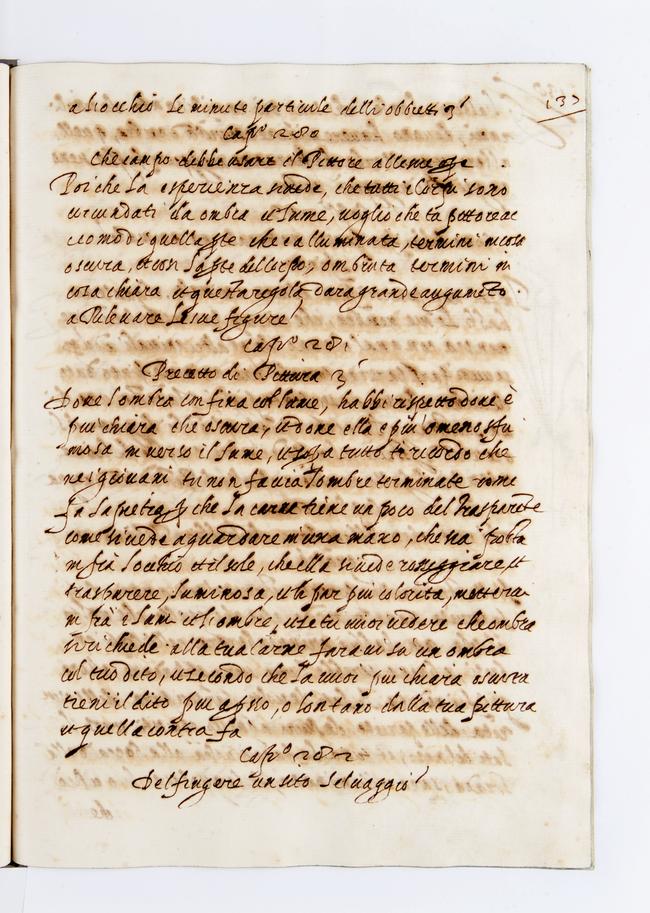 133
a l'occhio le minute particule delli obbietti
Cap.º 280
Che campo debbe usare il Pittore alle
Poi che la esperienza si vede, che tutti i corpi sono
circundati da ombra et lume, voglio che tu pittore ac
comodi quella pte che è alluminata, termini in cosa
oscura, et così la pte del corpo, ombrata termini in
cosa chiara et questa regola dara grande augumeto
a rilevare le sue figure
Cap.º 281
Precetto di Pittura
Dove l'ombra confina col lume, habbi rispetto dove è
piu chiara che oscura, et dove ella e piu o meno sfu
mosa in verso il lume, et sopa tutto ti ricordo che
nei giovani tu non facia l'ombre terminate come
fa la pietra p che la carne tiene un poco del trasparete
come si vede a guardare in una mano, che sia posta
in fra l'occhio et il sole, che ella si vede rosseggiare, et
trasparere, luminosa, et la par piu colorita, metterai
in fra i lumi et l'ombre, et se tu vuoi vedere che ombra
si richiede alla tua carne farai su un ombra
col tuo dito, et secondo che la vuoi piu chiara o scura
tieni il dito piu apsso, o lontano dalla tua pittura
et quella contra fa
Cap.º 282
Del fingere un sito selvaggio